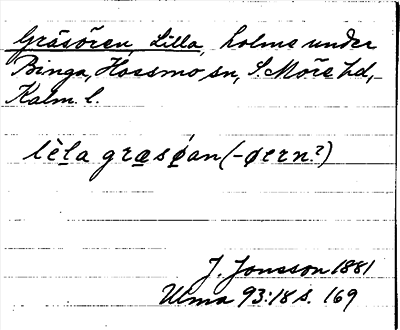 Gräsören, Lilla, holme under
Binga, Hossmo sn, S. Möre hd,
Kalm. l.
lè̱la græ̱sǿ̱an (-øern?)
J. Jonsson 1881
Ulma 93:18 s. 169